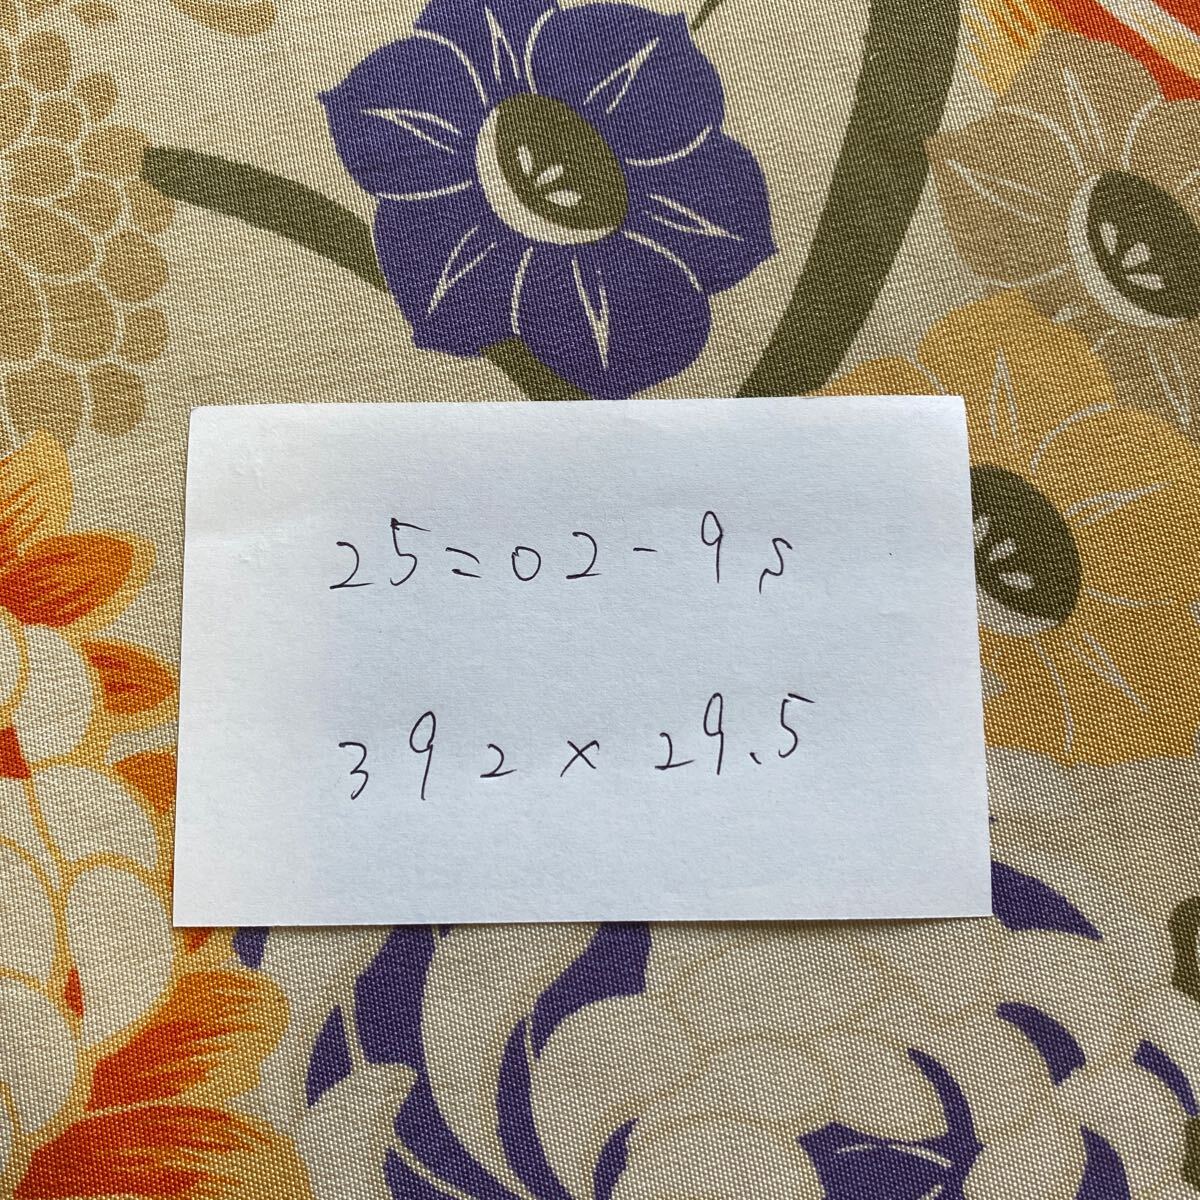 25=02-9s
392×29.5